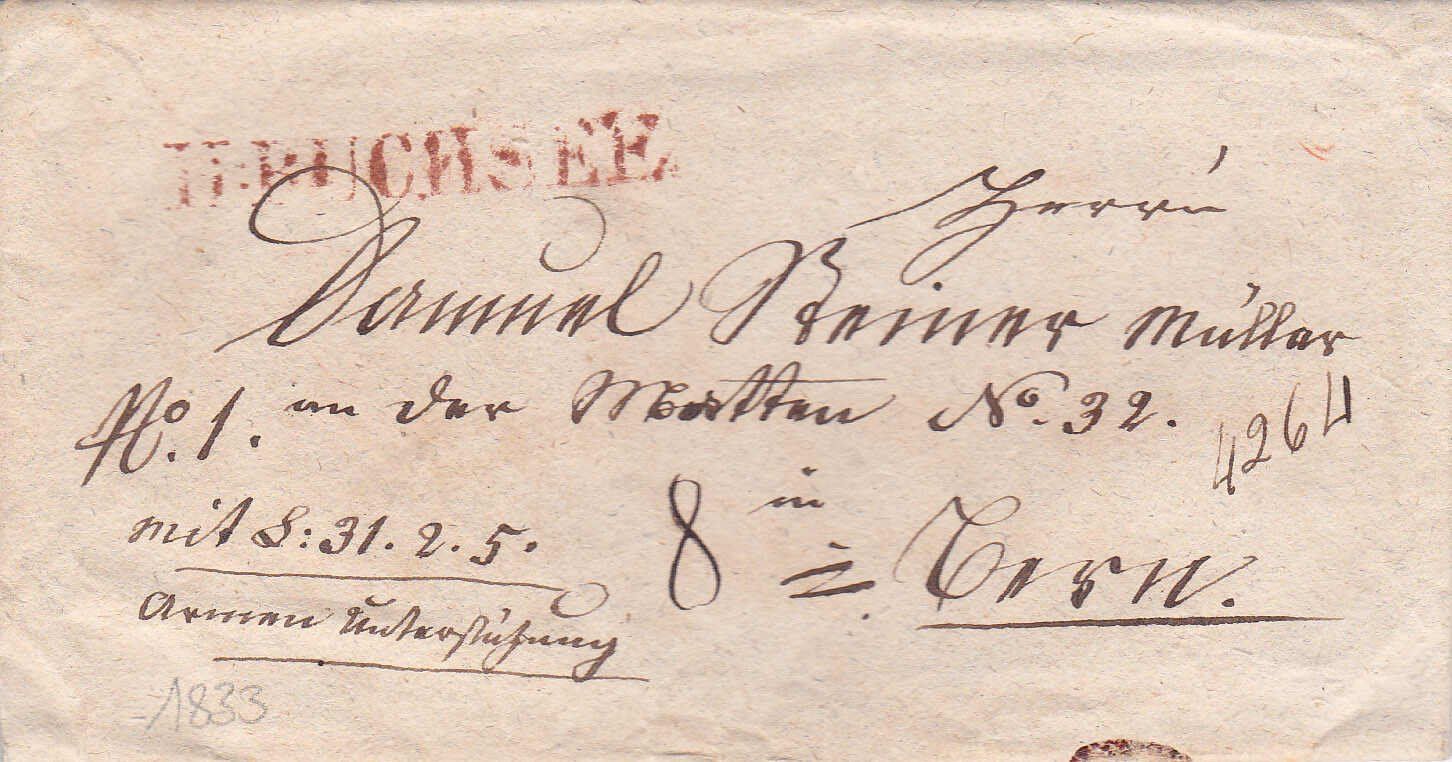 H:BUCHSEE.
Herrn
Samuel Steiner Müller
No. 1. an der Matten No. 32. 4264
mit L: 31. 2. 5. 8 in
Bern.
Armen Unterstüzung
1833